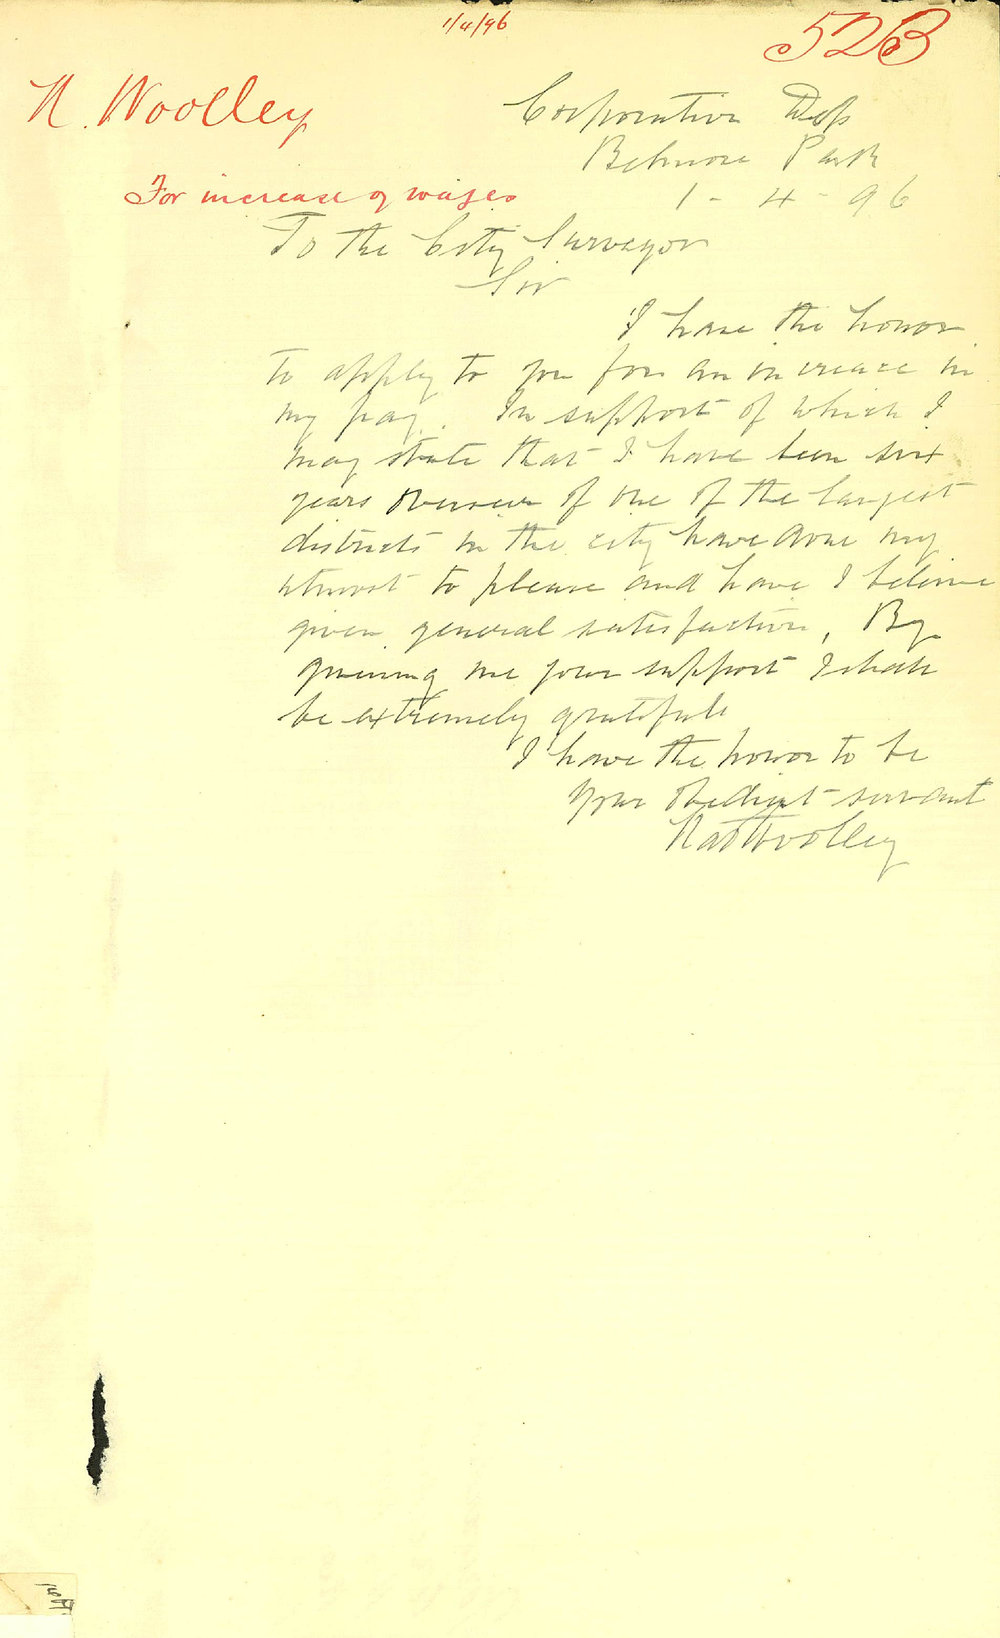 1/4/96
52B
N. Woolley
For increase of wages
Corporation Dep
Belmore Park
1 - 4 - 96
To the City Surveyor
Sir
I have the honor
to apply to you for an increase in
my pay. In support of which I
may state that I have been six
years overseer of one of the largest
districts in the city have done my
utmost to please and have I believe
given general satisfaction, By
giving me your support I shall
be extremely grateful
I have the honor to be
your obedient servant
Nat Woolley